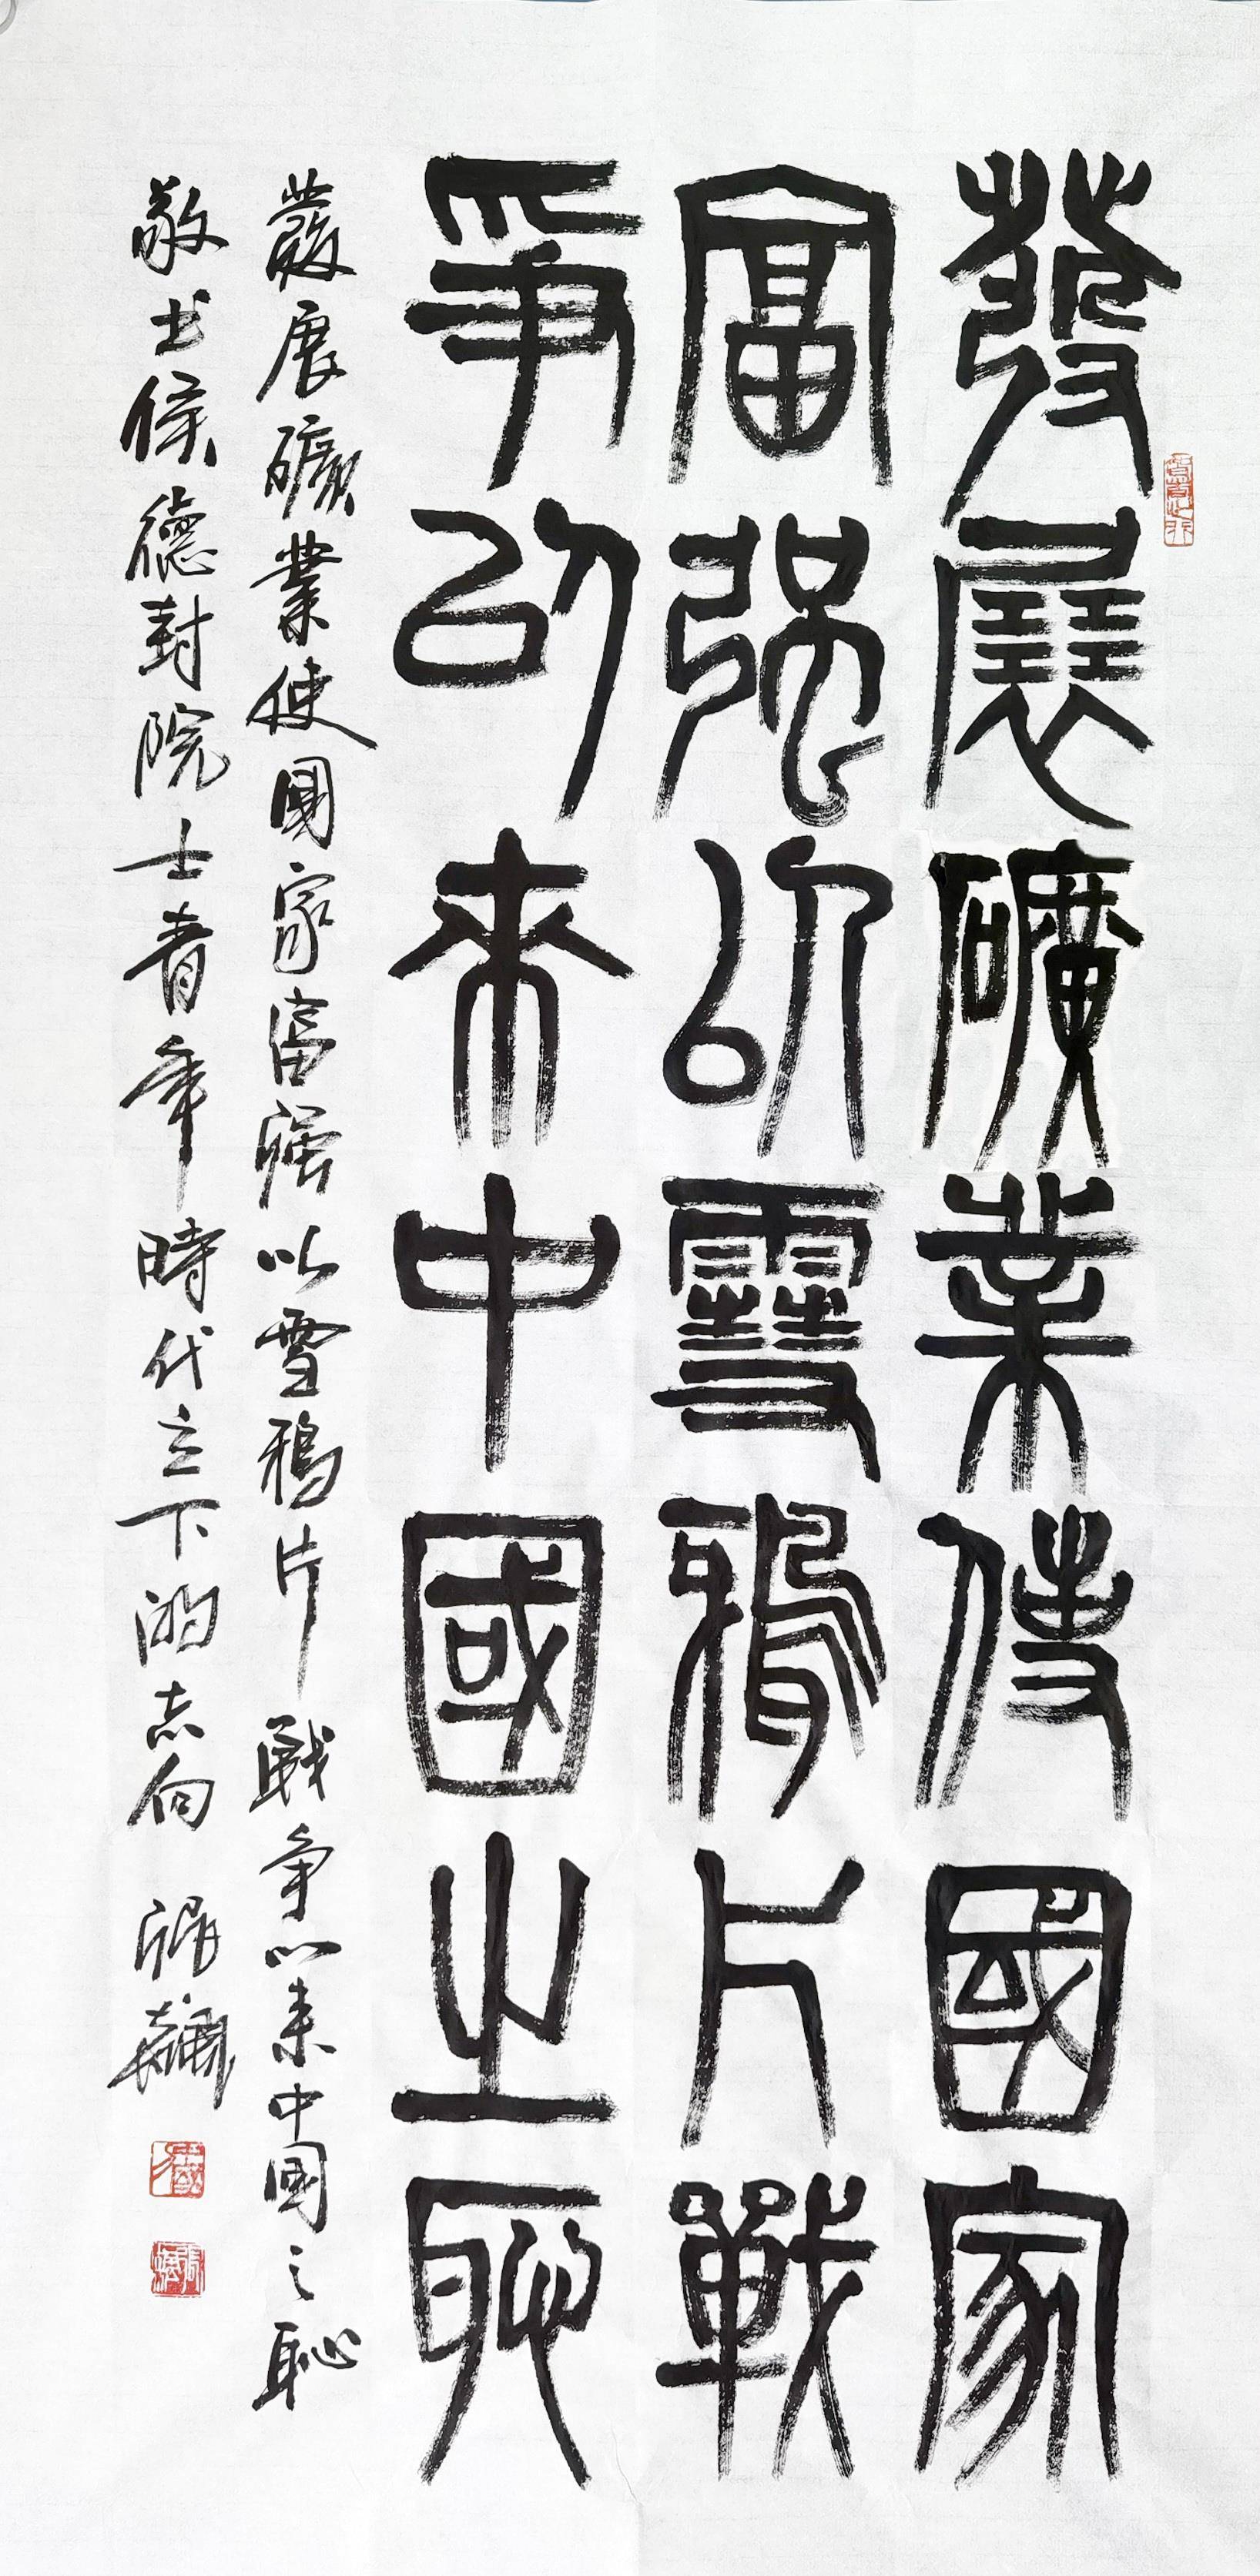 發展礦業使國家
富强以雪鴉片戰
爭以來中國之恥
發展礦業使國家富强以雪鴉片戰爭以來中國之恥
敬书侯德封院士青年時代立下的志向